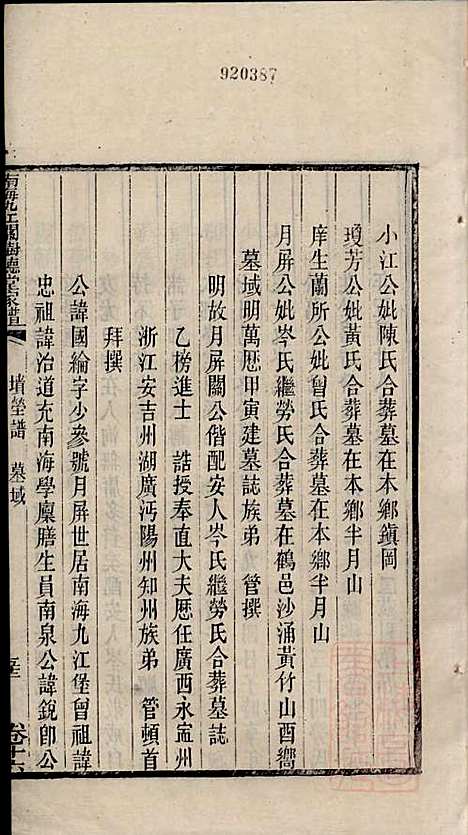 920387
小江公妣陳氏合葬墓在本鄉鎮岡
瓊芳公妣黃氏合葬墓在本鄉半月山
庠生蘭所公妣曾氏合葬墓在本鄉半月山
月屏公妣岑氏繼勞氏合葬墓在鶴邑沙涌黃竹山酉嚮
墓域明萬厯甲寅建墓誌族弟 管撰
明故月屏關公偕配安人岑氏繼勞氏合葬墓誌
乙榜進士 誥授奉直大夫厯任廣西永孟州
浙江安吉州湖廣沔陽州知州族弟 管頓首
拜撰
公諱國綸字少參號月屏世居南海九江堡曾祖諱
忠祖諱治道充南海學廩膳生員南泉公諱銳卽公
南海九江關樹德堂家譜 墳塋譜 墓域 卷十六